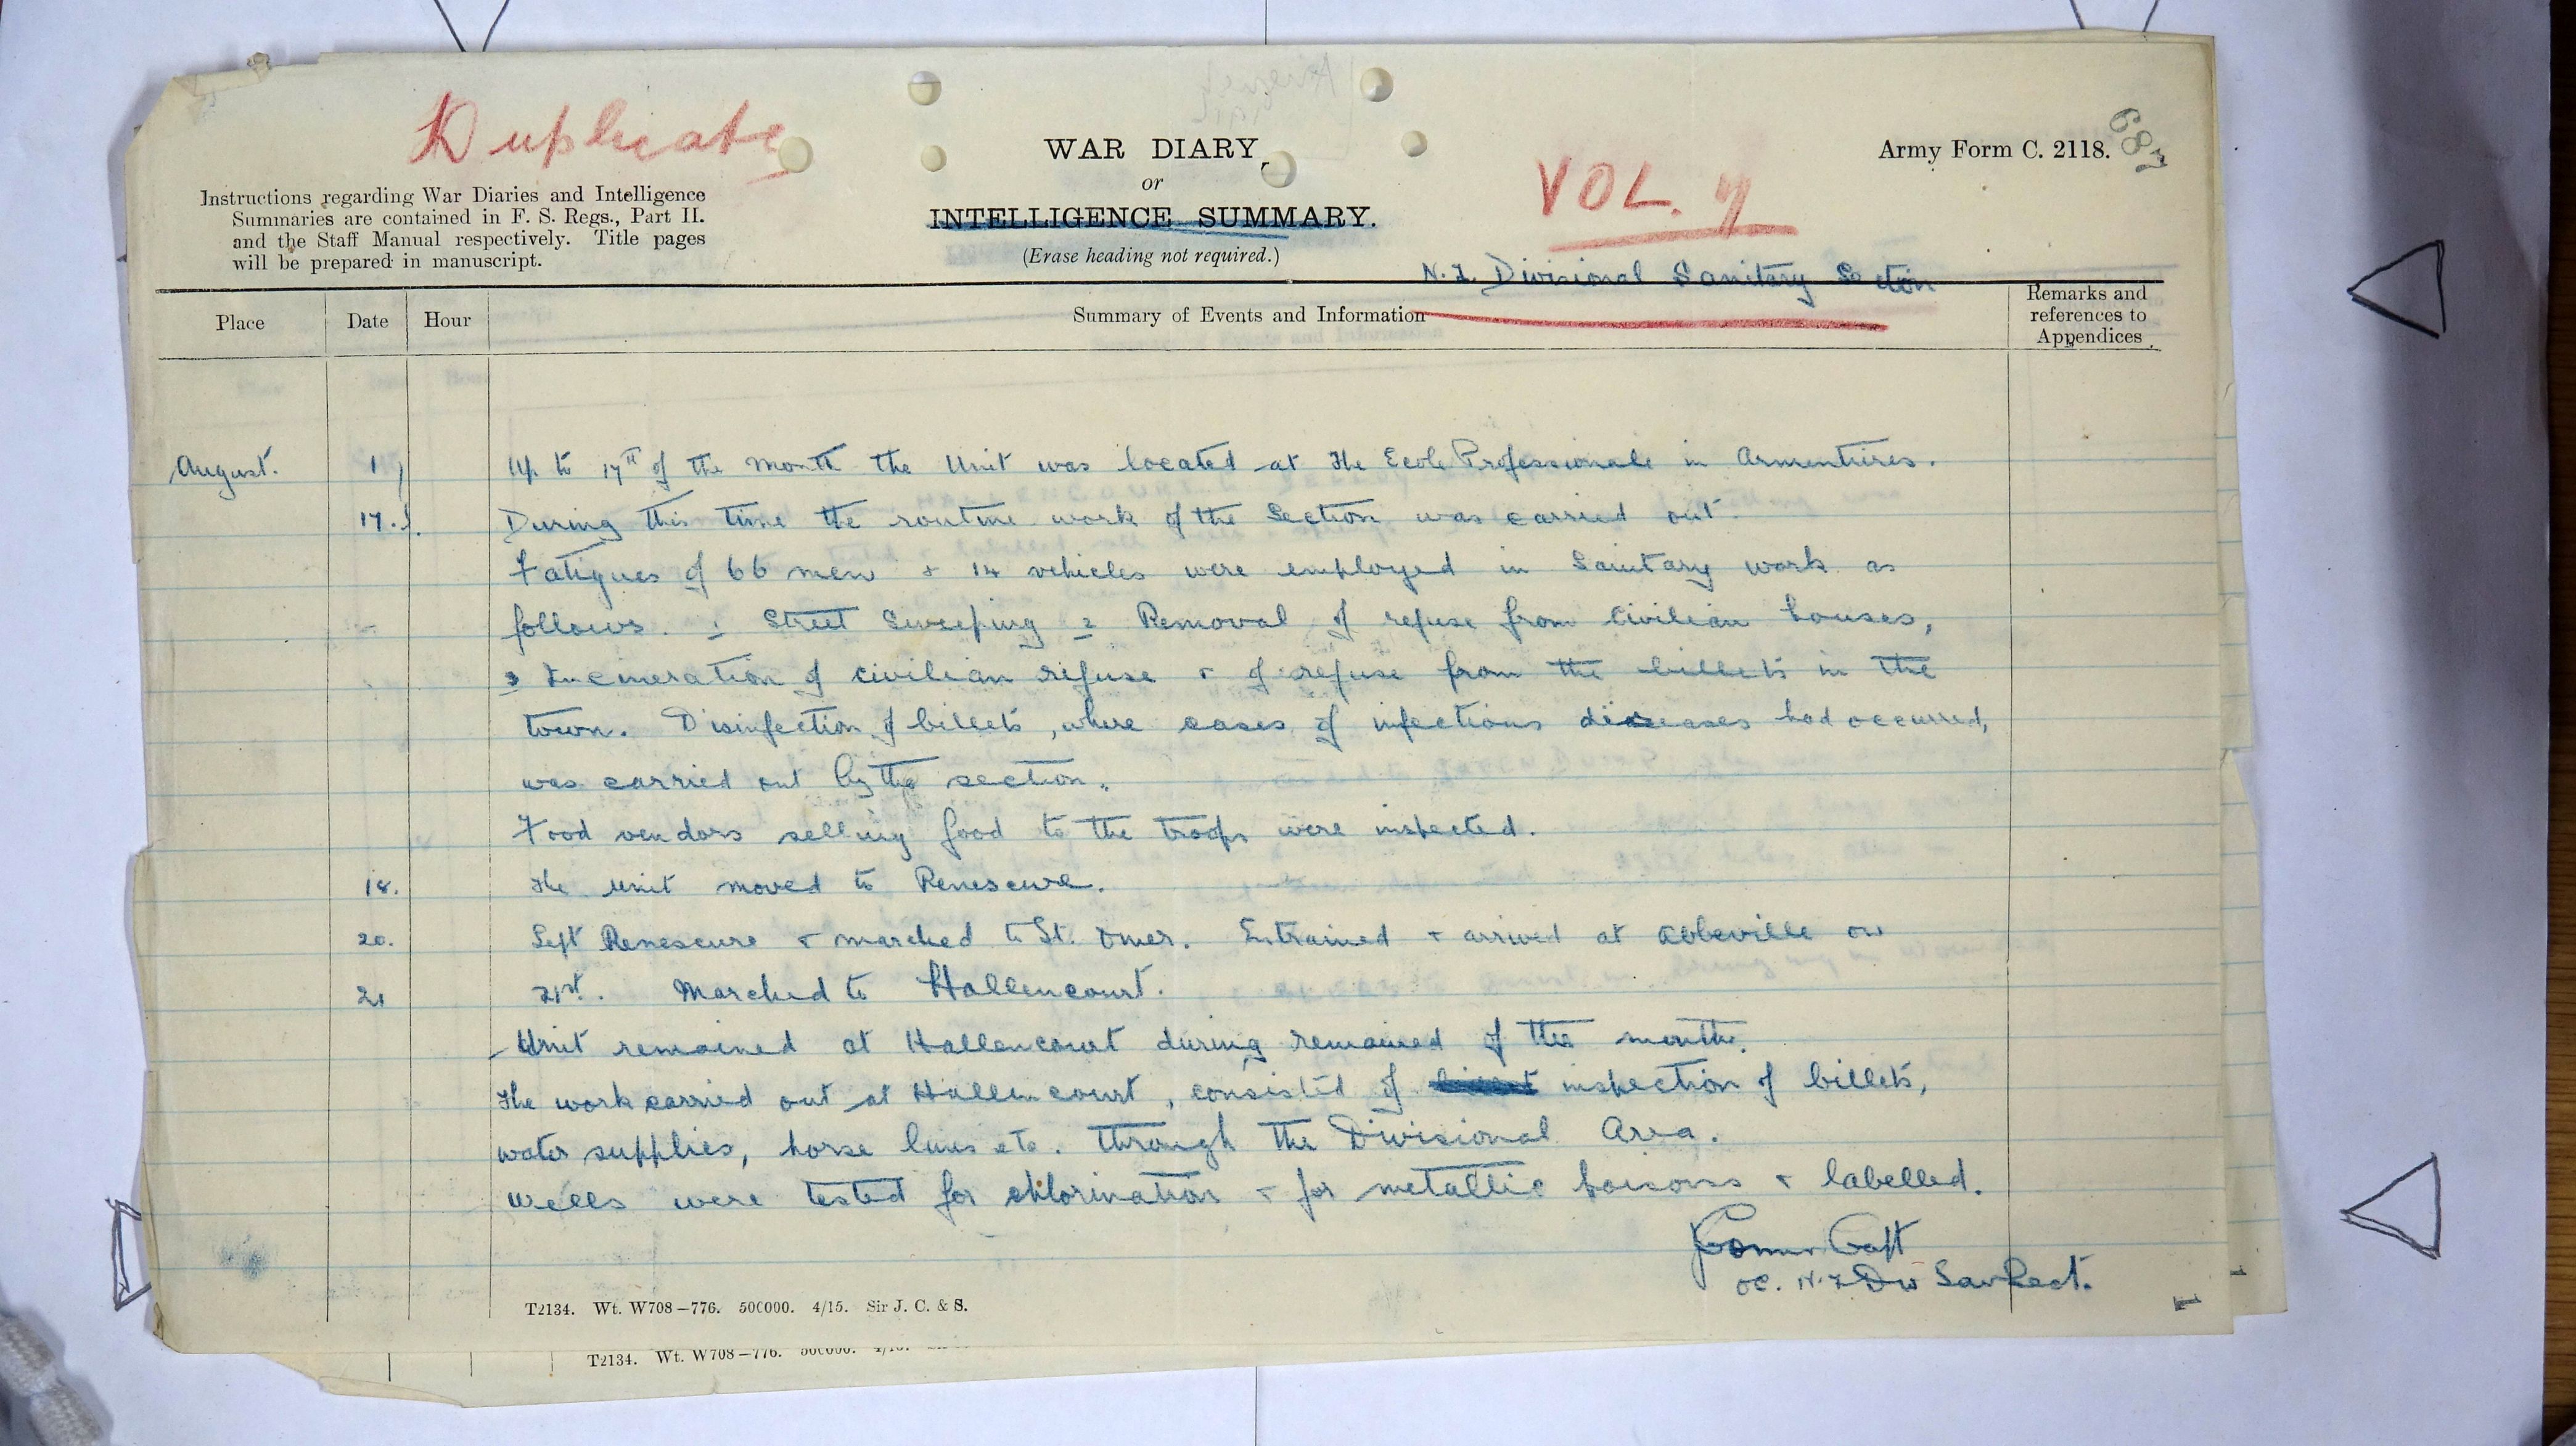 Duplicate
WAR DIARY
or
INTELLIGENCE SUMMARY.
(Erase heading not required.)
VOL. 7
Army Form C. 2118.
687
Instructions regarding War Diaries and Intelligence
Summaries are contained in F. S. Regs., Part II.
and the Staff Manual respectively. Title pages
will be prepared in manuscript.
N.Z. Divisional Sanitary Section
Place Date Hour Summary of Events and Information Remarks and references to Appendices
August. 1 Up to 17th of the month the Unit was located at the Ecole Professionale in Armentires.
17. During this time the routine work of the Section was carried out.
Fatigues of 66 men & 14 vehicles were employed in Sanitary work as
follows. 1 Street Sweeping 2 Removal of refuse from civilian houses,
3 Incineration of civilian refuse & of refuse from the billets in the
town. Disinfection of billets, where cases of infectious diseases had occurred,
was carried out by the section.
Food vendors selling food to the troops were inspected.
18. The Unit moved to Renescure.
20. Left Renescure & marched to St. Omer. Entrained & arrived at Abbeville on
21 21st. Marched to Hallencourt.
Unit remained at Hallencourt during remained of the month.
The work carried out at Hallencourt, consisted of inspection of billets,
water supplies, horse lines etc. through the Divisional Area.
Wells were tested for chlorination & for metallic poisons & labelled.
Capt
OC. N.Z Div San Sect.
T2134. Wt. W708—776. 500000. 4/15. Sir J. C. & S.
T2134. Wt. W708—776. 500000. 4/15.